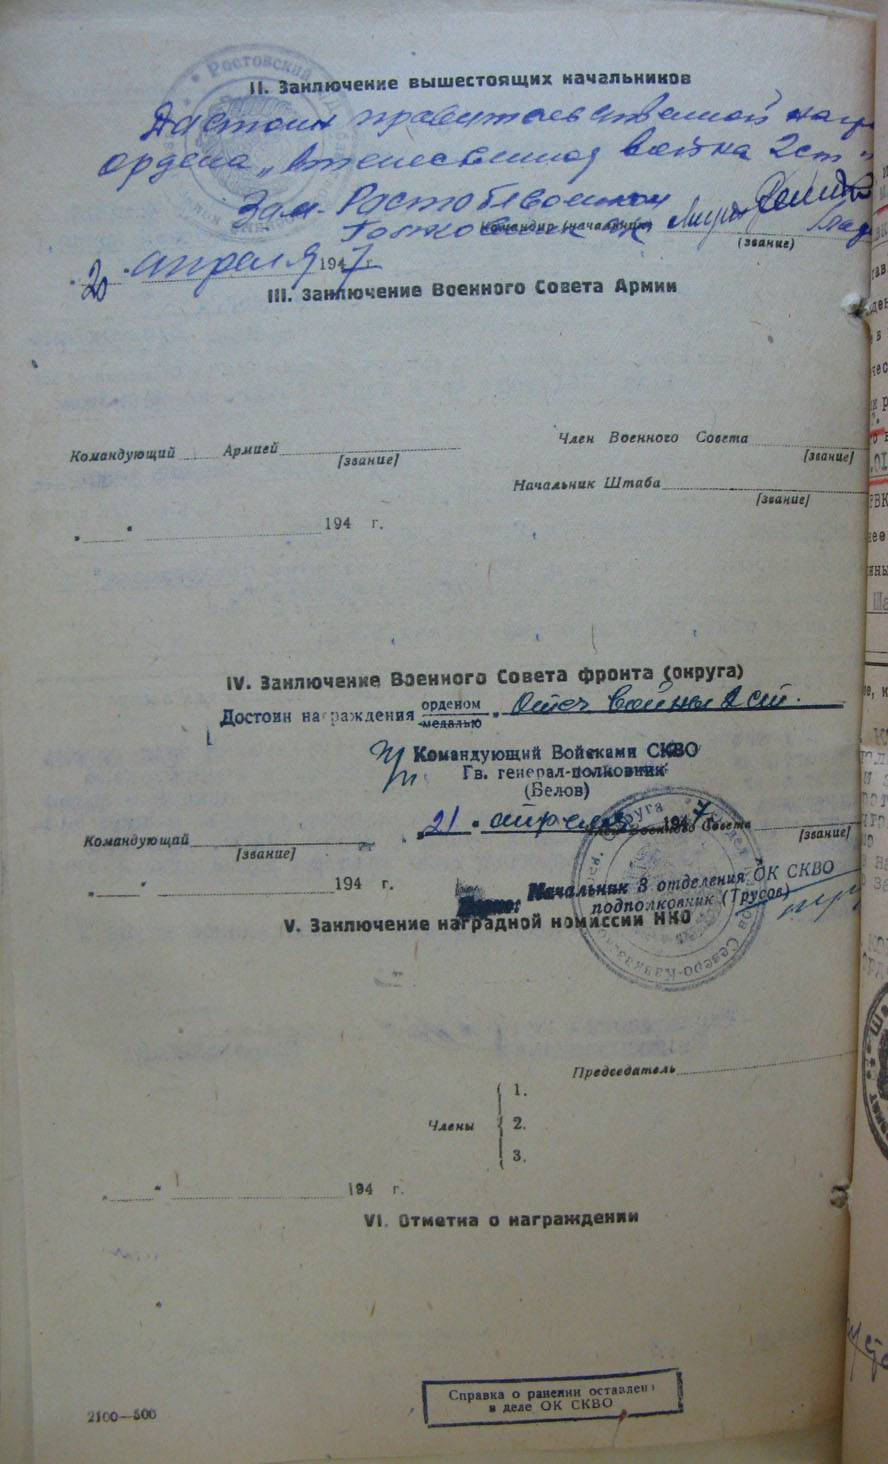 II. Заключение вышестоящих начальников
Достоин правительственной
ордена „Отечественная война 2 ст"
Зам. Ростоблвоенком
Полковник
Командир (начальник)
(звание)
"20" апреля 1947 г.
III. Заключение Военного Совета Армии
Командующий Армией
[звание]
Член Военного Совета
[звание]
Начальник Штаба
[звание]
" " 194 г.
IV. Заключение Военного Совета фронта (округа)
Достоин награждения орденом
медалью
" Отеч войны 2 ст.
Командующий Войсками СКВО
Гв. генерал-полковник
(Белов)
"21" апреля 1947
Командующай
[звание]
Член Военного Совета
[звание]
" " 194 г.
Верно: Начальник 3 отделения ОК СКВО
подполковник (Трусов)
V. Заключение наградной комиссии НКО
Председатель
Члены
1.
2.
3.
" " 194 г.
VI. Отметка о награждении
Справка о ранении оставлен
в деле ОК СКВО
2100—500